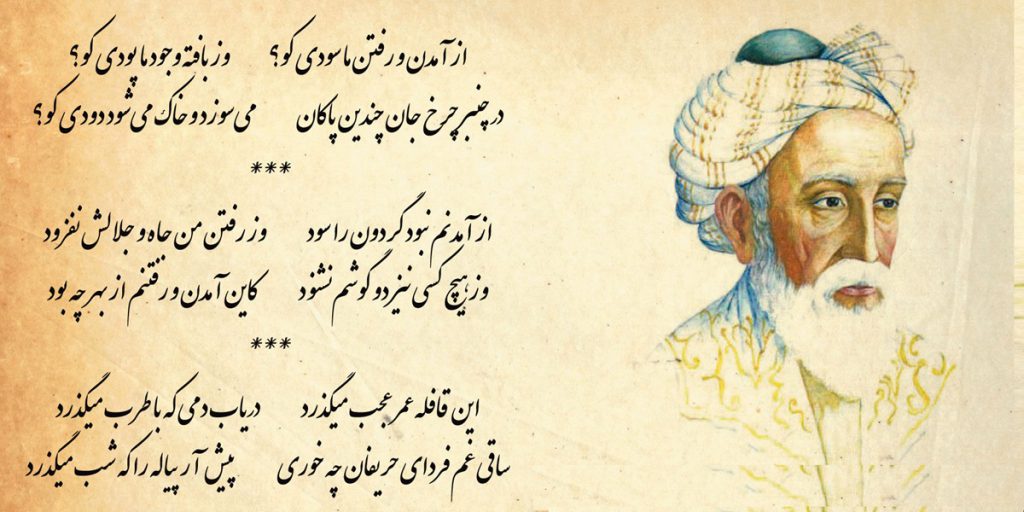 از آمدن و رفتن ما سودی کو؟ وز بافته وجود ما پودی کو؟
در چنبر چرخ جان چندین پاکان می‌سوزد و خاک می‌شود دودی کو؟
***
از آمدنم نبود گردون را سود وز رفتن من جاه و جلالش نفزود
وز هیچ کسی نیز دو گوشم نشنود کاین آمدن و رفتنم از بهر چه بود
***
این قافله عمر عجب میگذرد دریاب دمی که با طرب میگذرد
ساقی غم فردای حریفان چه خوری پیش آر پیاله را که شب میگذرد